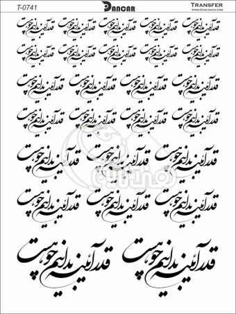 T-0741 DANOAR TRANSFER
قدر آئینه بدانیم چو هست قدر آئینه بدانیم چو هست قدر آئینه بدانیم چو هست قدر آئینه بدانیم چو هست
قدر آئینه بدانیم چو هست قدر آئینه بدانیم چو هست قدر آئینه بدانیم چو هست قدر آئینه بدانیم چو هست
قدر آئینه بدانیم چو هست قدر آئینه بدانیم چو هست قدر آئینه بدانیم چو هست قدر آئینه بدانیم چو هست
قدر آئینه بدانیم چو هست قدر آئینه بدانیم چو هست قدر آئینه بدانیم چو هست قدر آئینه بدانیم چو هست
قدر آئینه بدانیم چو هست قدر آئینه بدانیم چو هست قدر آئینه بدانیم چو هست
قدر آئینه بدانیم چو هست قدر آئینه بدانیم چو هست قدر آئینه بدانیم چو هست
قدر آئینه بدانیم چو هست قدر آئینه بدانیم چو هست